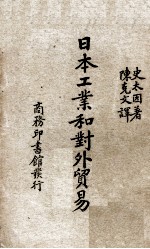 史木因著
陳克文譯
日本工業和對外貿易
商務印書館發行